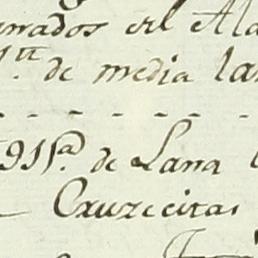 nrados en el Ala
1.tt de media lar
- - - - - - -
911p.a de Lana
Cruzecitas